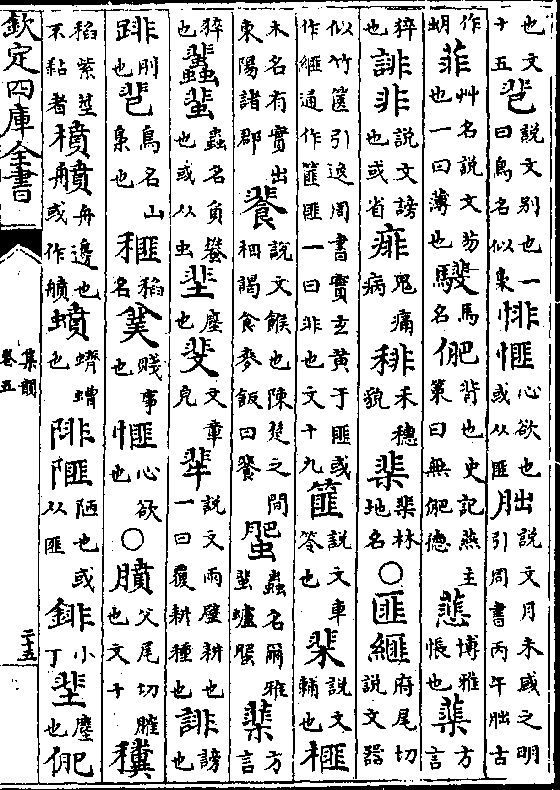 也文十五曰說文別也一曰鳥名似梟悱心欲也或从匪朏說文月未盛之明引周書丙午朏古
作蚏菲艸名說文芴也一曰薄也騛馬名俷背也史記燕王策曰無俷德蕜博雅悵也方言
猝也誹非說文謗也或省痱鬼痛病禾穗貌棐棐林地名○匪府尾切說文器
似竹篋引逸周書實玄黃于匪或作通作篚匪一曰非也文十九篚說文車笭也棐說文輔也榧
木名有實出東陽諸郡餥說文餱也陳楚之間相謁食麥飯曰餥蜰蟲名爾雅蜚蠦蜰方言
猝也蜚蟲名負蠜也或从虫塵也斐文章皃說文兩壁耕也一曰覆耕種也誹謗也
刖也鳥名山梟也稻名賤事也心欲也○膹父尾切臛也文十
稻紫莖不黏者舟邊也或作蟦蠐螬也陫陋也或从匪小釘塵也俷
欽定四庫全書
集韻卷五
二十五